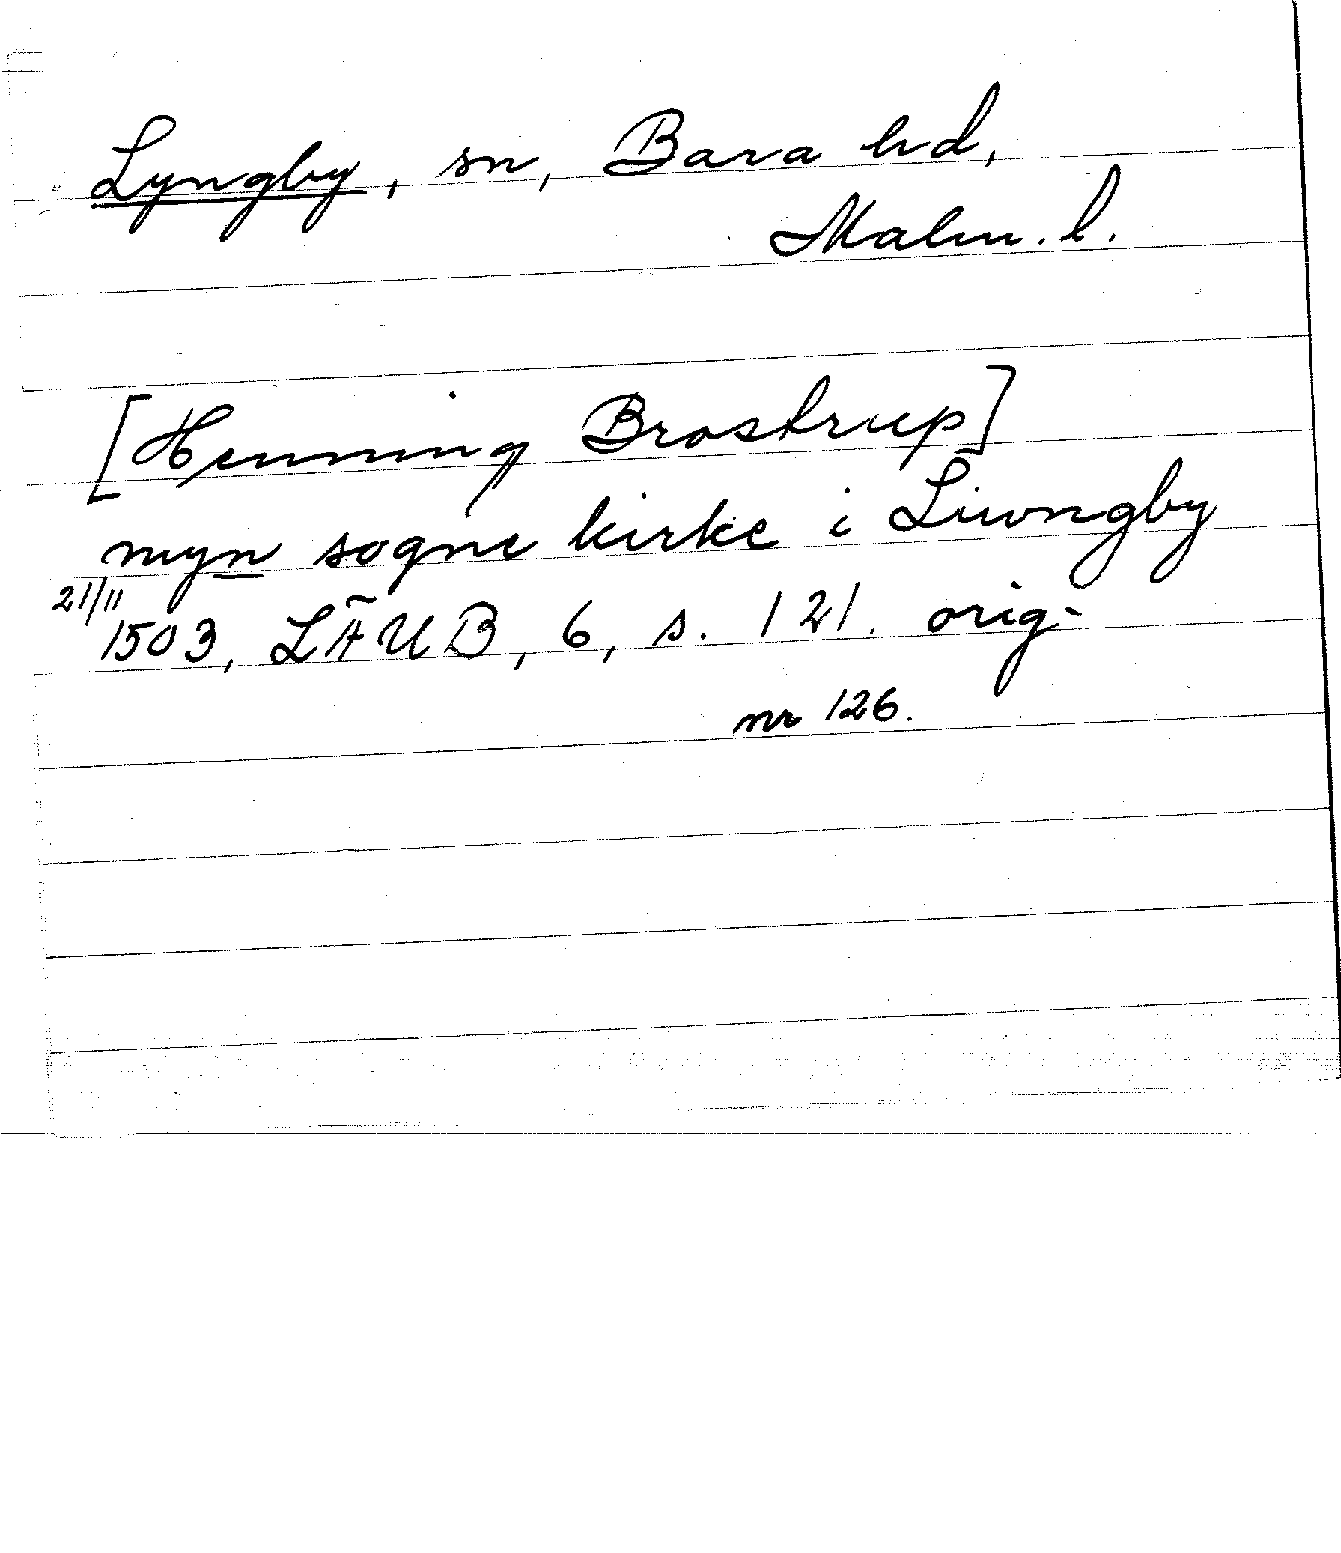 Lyngby, sn, Bara hd,
Malm. l.
[Henning Brostrup]
myn sogne kirke i Liwngby
21/11 1503, LÄUB, 6, s. 121. orig.
nr 126.